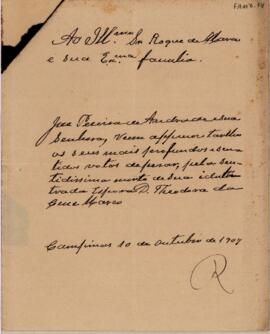 Ao Ill.mo Sr. Roque de Marco
e sua Ex.ma familia.
José Pereira de Andrade e sua
Senhora, vem apresentar
os seus mais profundos e sen-
tidos votos de pesar, pela sen-
tidissima morte de sua idola-
trada esposa D. Theodora da
Cruz Marco
Campinas 10 de Outubro de 1907
R